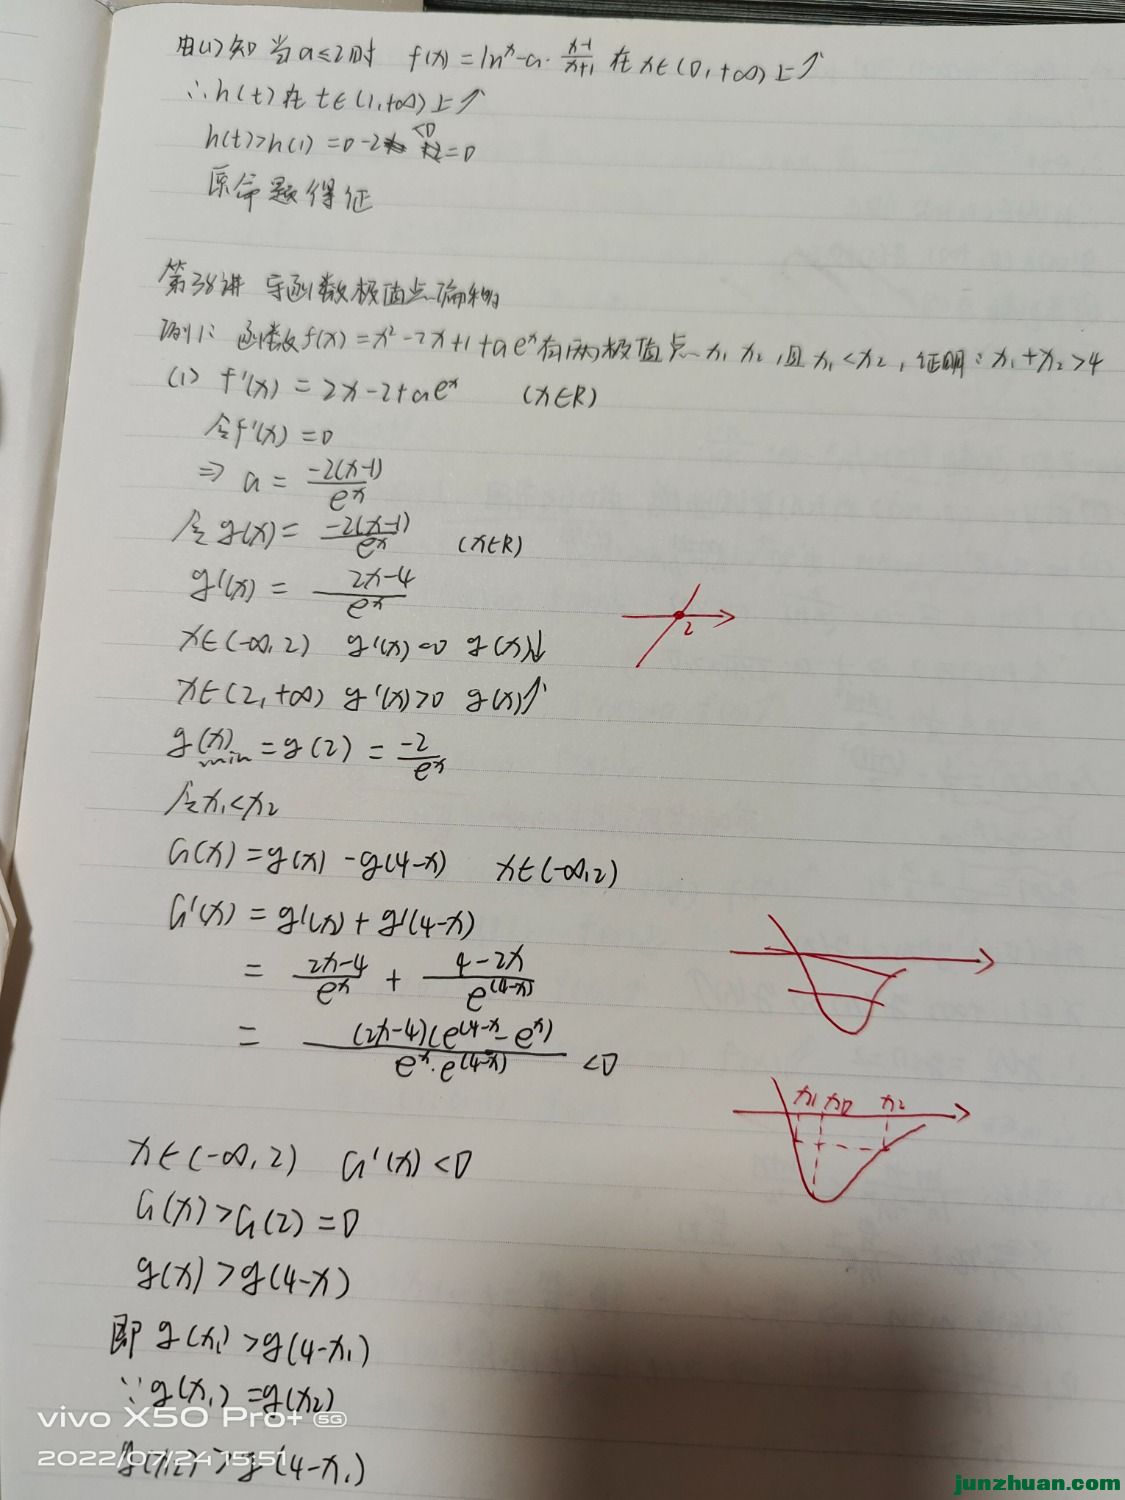 由(1)知 当a≤2时 f(x)=ln^x-a·\frac{x-1}{x+1} 在x∈(0,+∞)上↑
∴h(t)在t∈(1,+∞)上↑
h(t)>h(1)=0-2 =0
原命题得证
第38讲 导函数极值点偏移
例1: 函数f(x)=x²-2x+1+ae^x有两极值点x₁ x₂,且x₁<x₂,证明:x₁+x₂>4
(1) f'(x)=2x-2+ae^x (x∈R)
令f'(x)=0
⇒ a=\frac{-2(x-1)}{e^x}
令g(x)=\frac{-2(x-1)}{e^x} (x∈R)
g'(x)=\frac{2x-4}{e^x}
2
x∈(-∞,2) g'(x)<0 g(x)↓
x∈(2,+∞) g'(x)>0 g(x)↑
g(x)min=g(2)=\frac{-2}{e^x}
令x₁<x₂
G(x)=g(x)-g(4-x) x∈(-∞,2)
G'(x)=g'(x)+g'(4-x)
=\frac{2x-4}{e^x}+\frac{4-2x}{e^{(4-x)}}
=\frac{(2x-4)(e^{(4-x}-e^x)}{e^x·e^{(4-x)}}<0
x₁ x₀ x₂
x∈(-∞,2) G'(x)<0
G(x)>G(2)=0
g(x)>g(4-x)
即 g(x₁)>g(4-x₁)
∵g(x₁)=g(x₂)
g(x₂)>g(4-x₁)
vivo X50 Pro+ 5G
2022/07/24 15:51
junzhuan.com